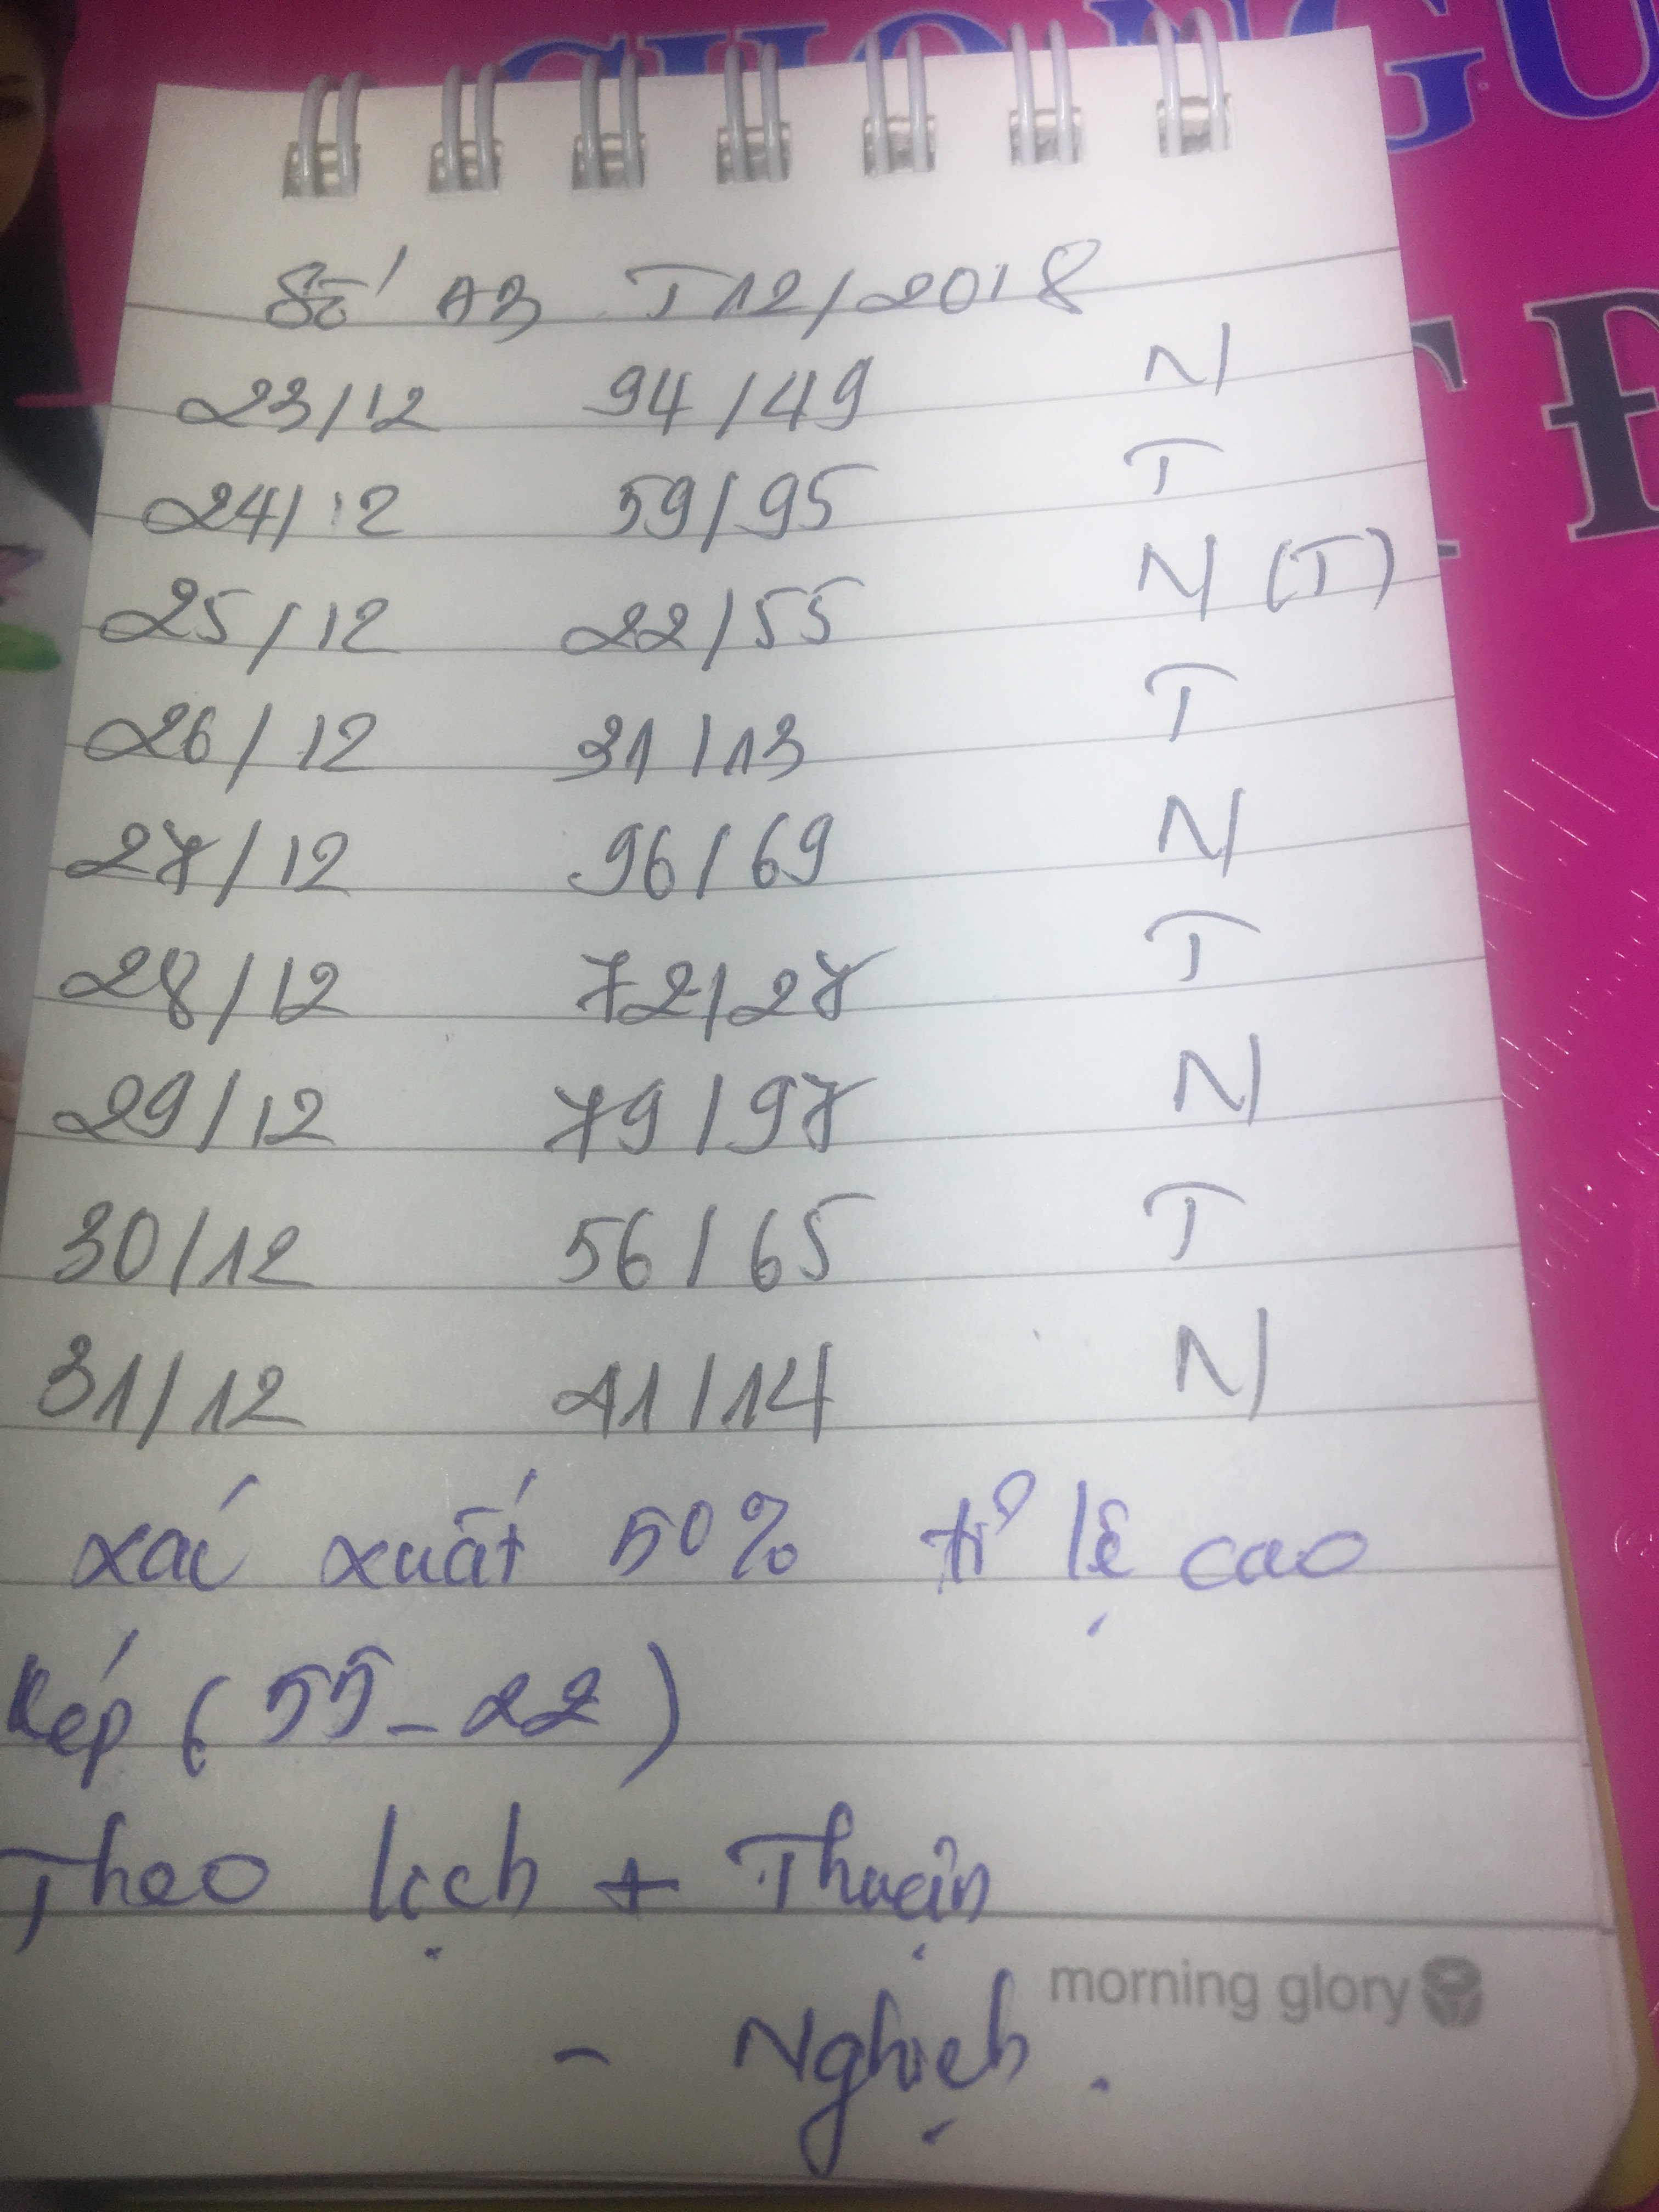 CHO NGƯ
T Đ
Số AB T12/2018
23/12 94/49 N
24/12 59/95 T
25/12 22/55 N (T)
26/12 31/13 T
27/12 96/69 N
28/12 72/27 T
29/12 79/97 N
30/12 56/65 T
31/12 41/14 N
xác xuất 50% tỉ lệ cao
Kép (55-22)
Theo lịch + Thuận
- Nghịch.
morning glory